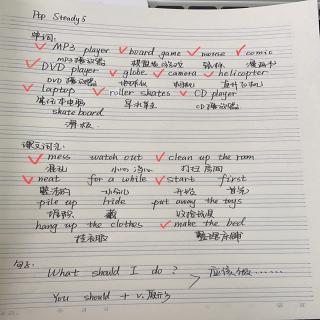 Pop Steady 5
单词:
MP3 player board game mouse comic
mp3播放器 棋盘游戏 鼠标 漫画书
DVD player globe camera helicopter
DVD播放器 地球仪 照相机 直升飞机
laptop roller skates CD player
笔记本电脑 旱冰鞋 CD播放器
skateboard
滑板
课文词汇:
mess watch out clean up the room
混乱 小心 打扫房间
neat for a while start first
整洁的 一小会儿 开始 首先
pile up hide put away the toys
堆积 藏 收拾玩具
hang up the clothes make the bed
挂衣服 整理床铺
句子:
What should I do? 应该做......
You should + v.原形